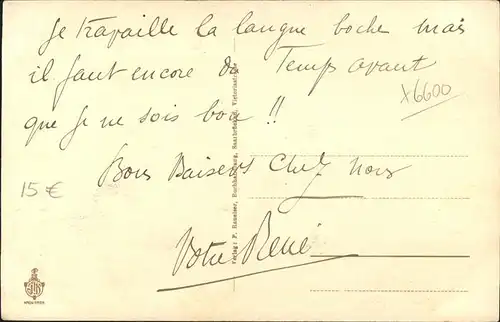 Je travaille la langue boche mais
il faut encore du Temps avant
que Je ne sois bon !!
Bons Baisers Chez nous
Votre René
X6600
15 €
Verlag: P. Buchhandlung, Saarbrücken, Victoriastr.